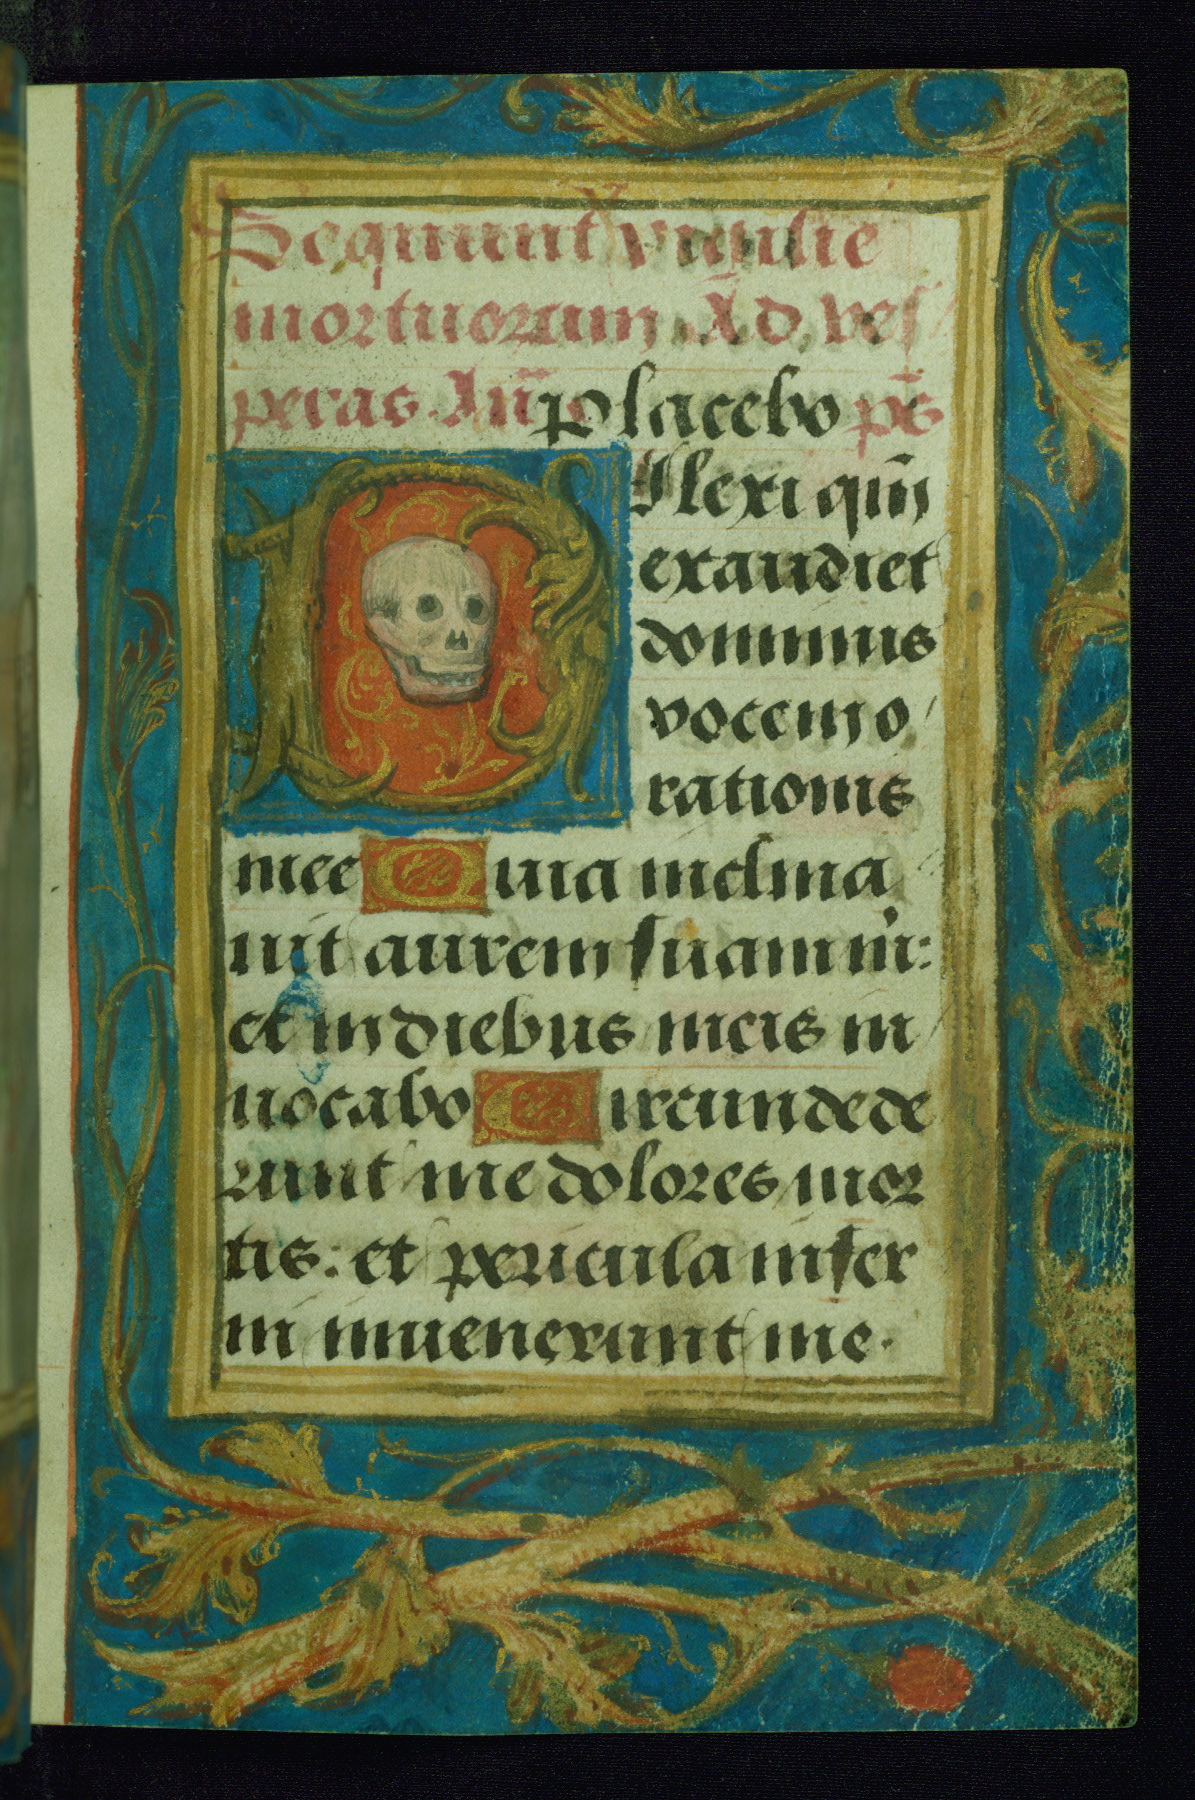 Sequunt vigilie
mortuorum. Ad ves
peras. Añ placebo p̄s
Dilexi qm̄
exaudiet
dominus
vocem o
rationis
mee Quia inclina
uit aurem suam m̄:
et in diebus meis in
uocabo Circundede
runt me dolores mor
tis: et pericula infer
ni inuenerunt me.